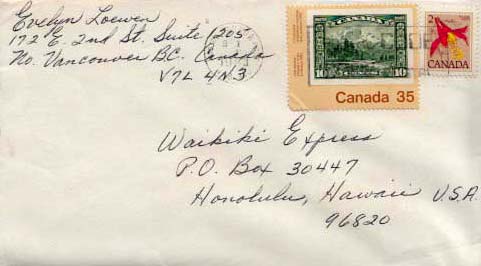 Evelyn Loewen
172 E. 2nd St. Suite 1205
No. Vancouver B.C. Canada
V7L 4N3
CANADA
10 10
Canada 35
2
CANADA
Waikiki Express
P.O. Box 30447
Honolulu, Hawaii U.S.A.
96820